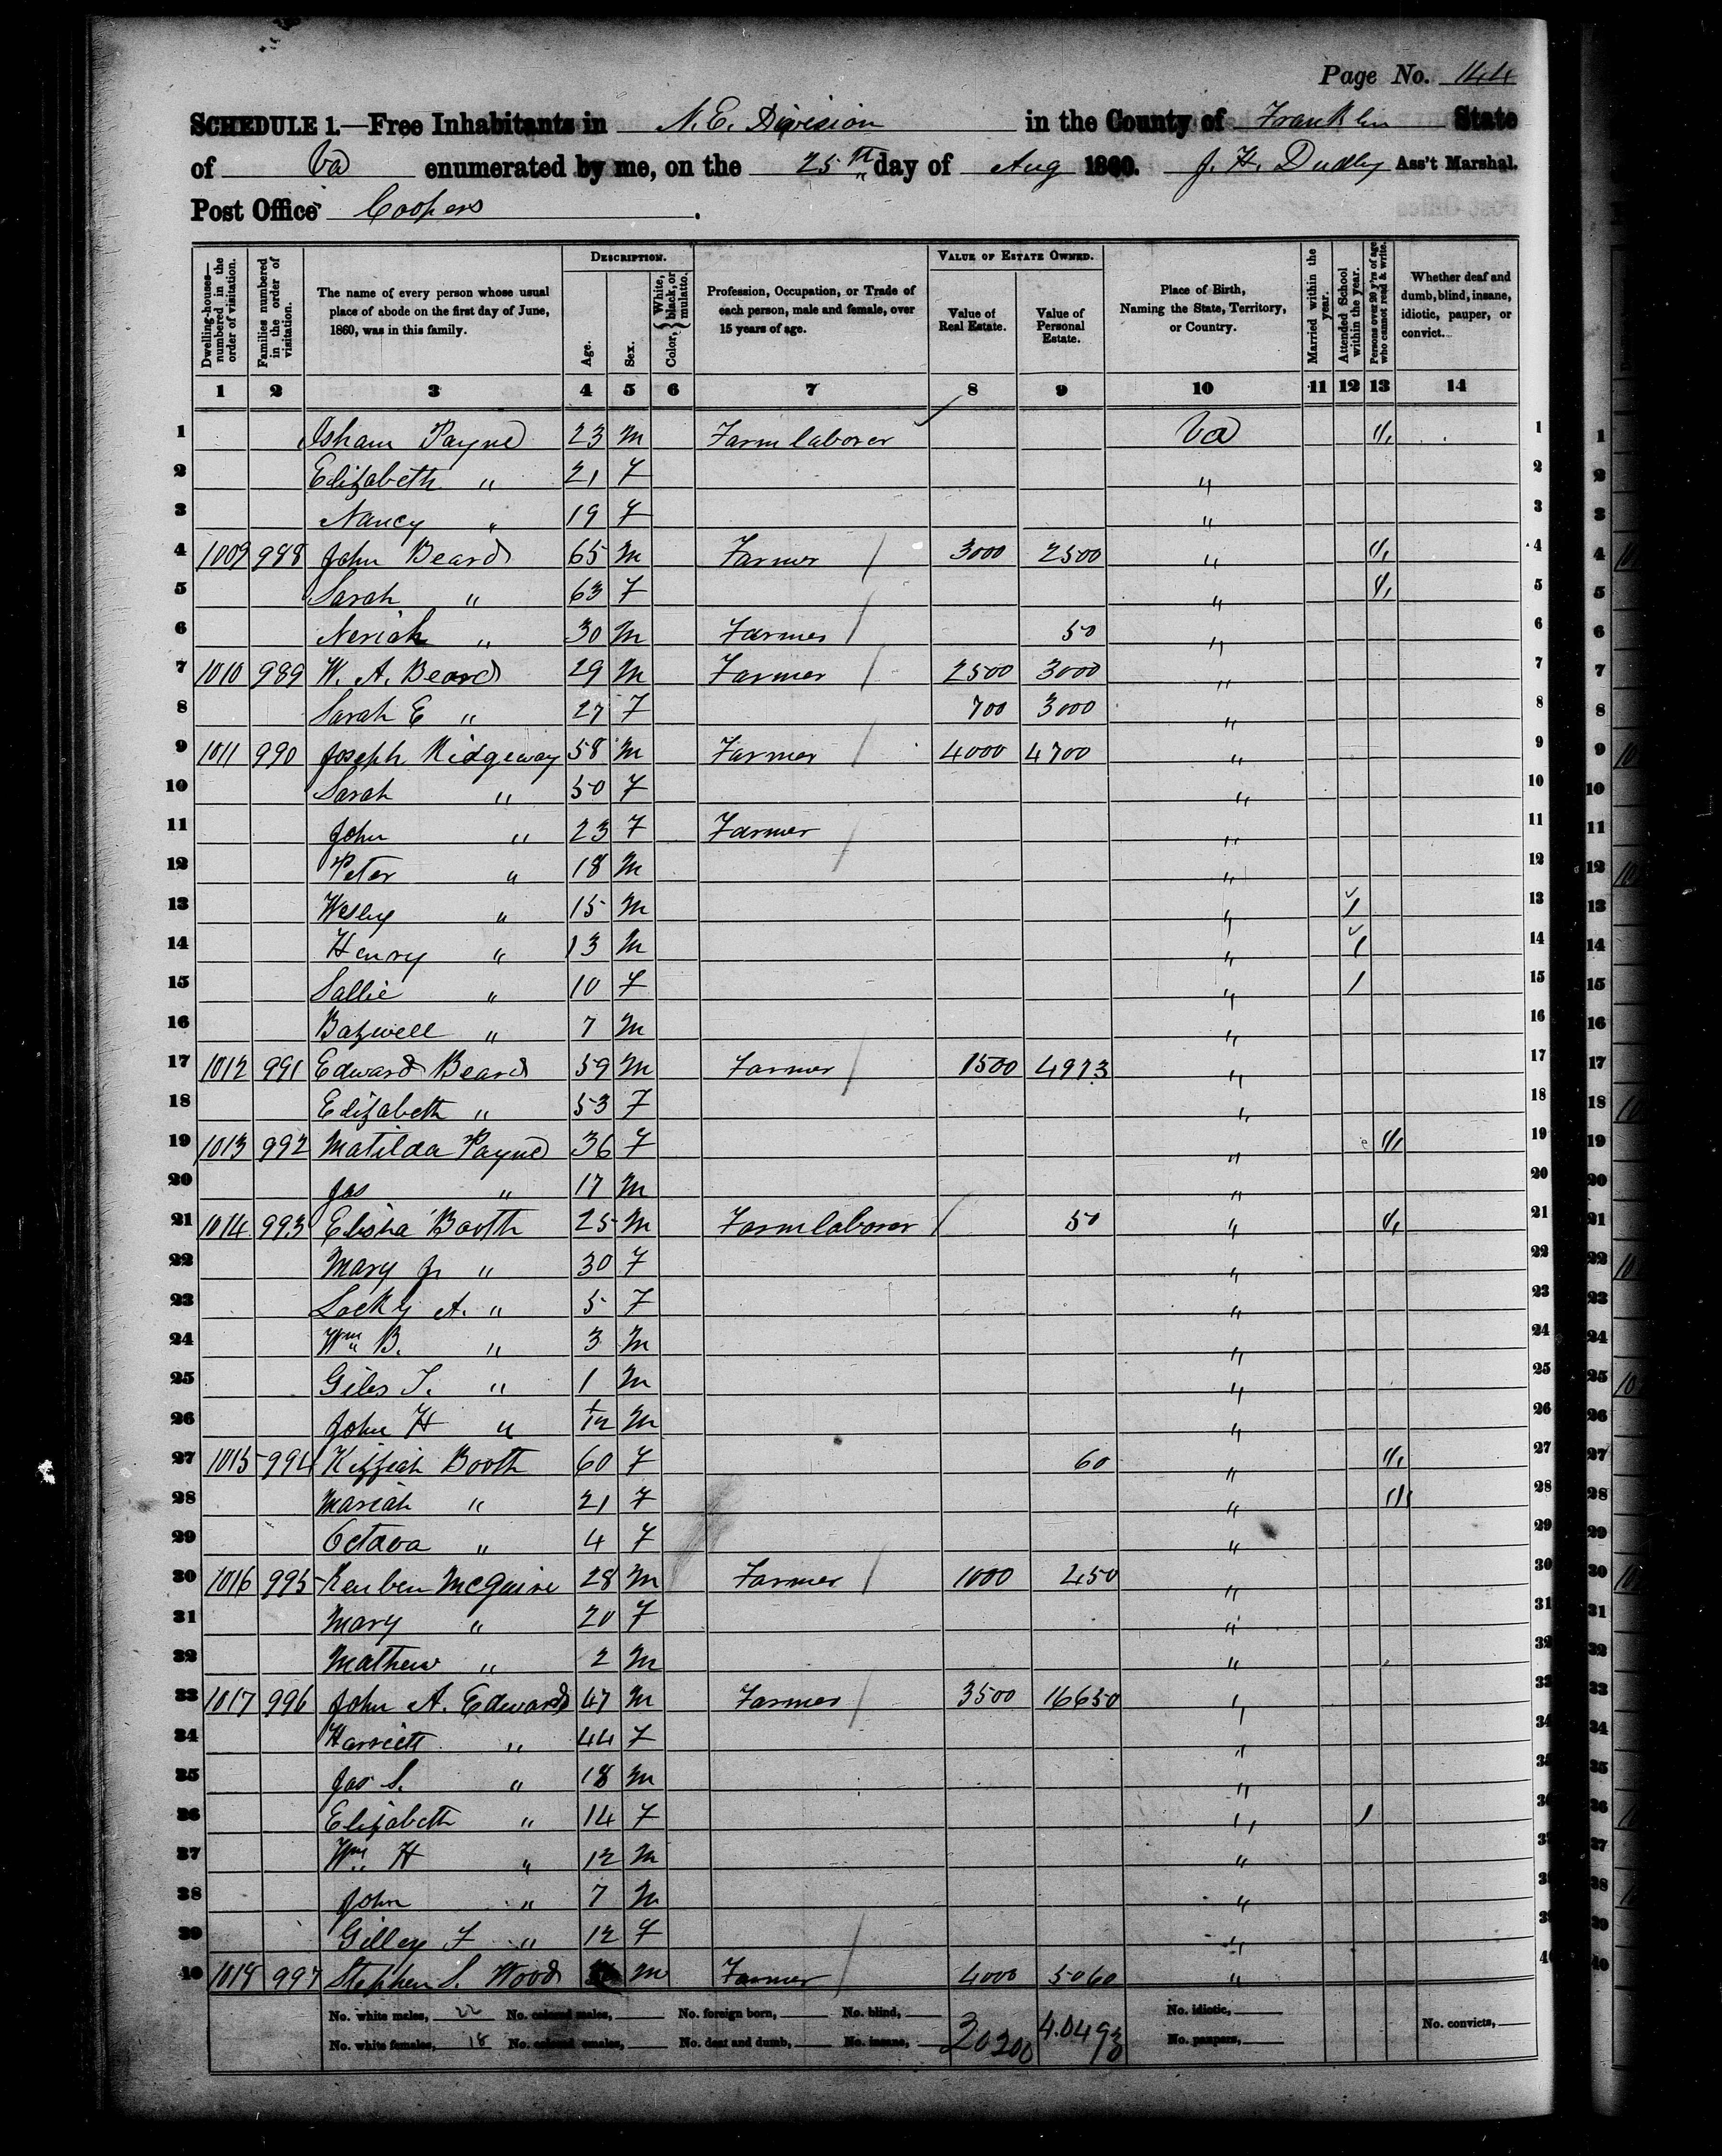 Page No. 144
SCHEDULE 1.—Free Inhabitants in N. E. Division in the County of Franklin State
of Va enumerated by me, on the 25th day of Aug 1860. J. H. Dudley Ass't Marshal.
Post Office Coopers.
Dwelling-houses—numbered in the order of visitation. Families numbered in the order of visitation. The name of every person whose usual place of abode on the first day of June, 1860, was in this family. DESCRIPTION. Age. Sex. Color, { White, black, or mulatto. Profession, Occupation, or Trade of each person, male and female, over 15 years of age. VALUE OF ESTATE OWNED. Value of Real Estate. Value of Personal Estate. Place of Birth, Naming the State, Territory, or Country. Married within the year. Attended School within the year. Persons over 20 y'rs of age who cannot read & write. Whether deaf and dumb, blind, insane, idiotic, pauper, or convict.
1 2 3 4 5 6 7 8 9 10 11 12 13 14
1 Isham Payne 23 M Farm laborer Va /, 1
2 Elizabeth " 21 F " 2
3 Nancy " 19 F " 3
4 1009 988 John Beard 65 M Farmer / 3000 2500 " /, 4
5 Sarah " 63 F " /, 5
6 Neriah " 30 M Farmer / 50 " 6
7 1010 989 W. A. Beard 29 M Farmer / 2500 3000 " 7
8 Sarah E " 27 F 700 3000 " 8
9 1011 990 Joseph Ridgeway 58 M Farmer / 4000 4700 " 9
10 Sarah " 50 F " 10
11 John " 23 F Farmer / " 11
12 Peter " 18 M " 12
13 Wesley " 15 M " / 13
14 Henry " 13 M " / 14
15 Sallie " 10 F " / 15
16 Bazwell " 7 M " 16
17 1012 991 Edward Beard 59 M Farmer / 1500 4973 " 17
18 Elizabeth " 53 F " 18
19 1013 992 Matilda Payne 36 F " /, 19
20 Jas " 17 M " 20
21 1014 993 Elisha Booth 25 M Farm laborer / 50 " /, 21
22 Mary J. " 30 F " 22
23 Locky A. " 5 F " 23
24 Wm B. " 3 M " 24
25 Giles T. " 1 M " 25
26 John H " 1/12 M " 26
27 1015 994 Kizziah Booth 60 F 60 " /, 27
28 Mariah " 21 F " /, 28
29 Octava " 4 F " 29
30 1016 995 Reuben McGuire 28 M Farmer / 1000 450 " 30
31 Mary " 20 F " 31
32 Mathew " 2 M " 32
33 1017 996 John A. Edwards 47 M Farmer / 3500 16650 " 33
34 Harriett " 44 F " 34
35 Jas S. " 18 M " 35
36 Elizabeth " 14 F " / 36
37 Wm H " 12 M "
38 John " 7 M "
39 Gilley F " 12 F "
40 1018 997 Stephen S. Wood M Farmer / 4000 5060 "
No. white males, 22 No. colored males, No. foreign born, No. blind, 20200 40493 No. idiotic, No. convicts,
No. white females, 18 No. colored females, No. deaf and dumb, No. insane, No. paupers,